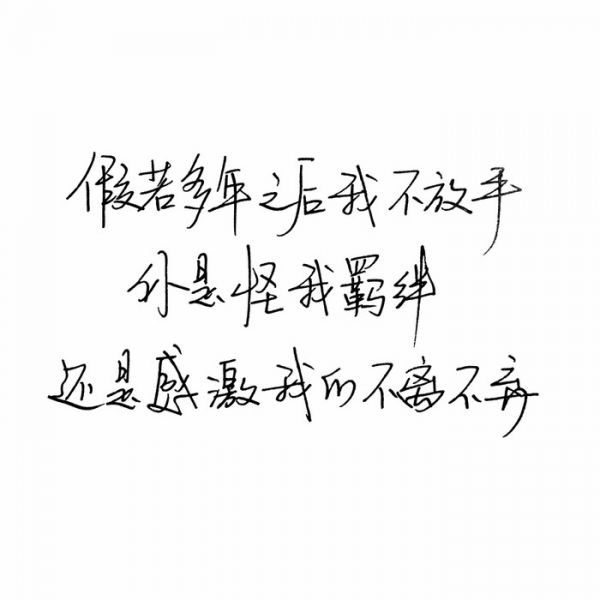 假若多年之后我不放手
你是怪我羁绊
还是感激我的不离不弃